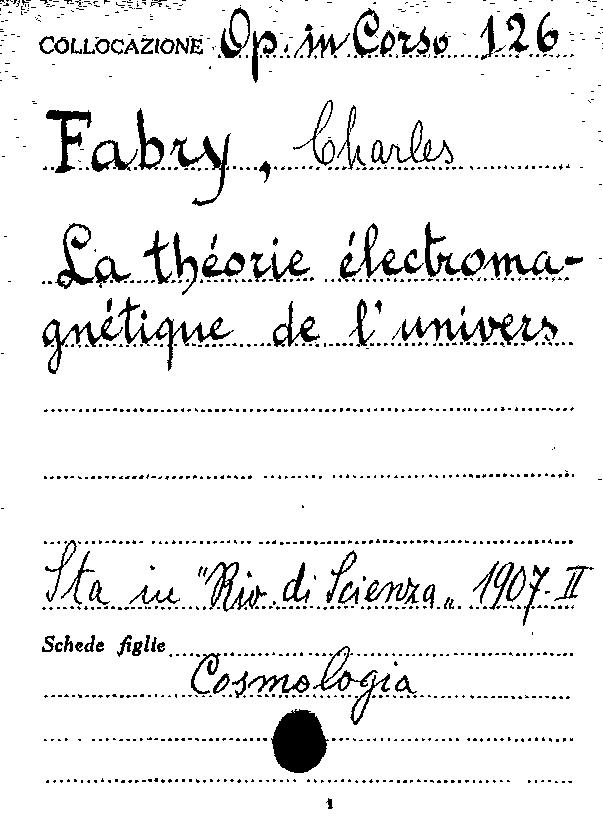 COLLOCAZIONE Op. in Corso 126
Fabry, Charles
La théorie électroma-
gnétique de l'univers
Sta in "Riv. di Scienza„ 1907-II
Schede figlie
Cosmologia
1